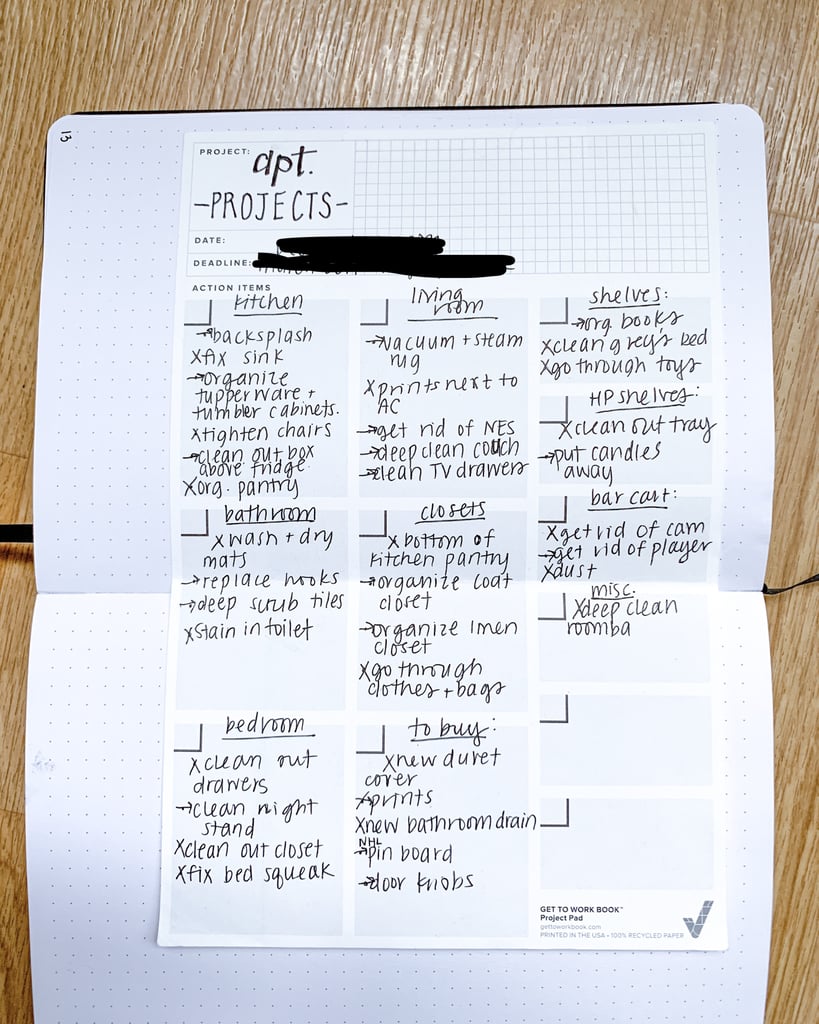 13
PROJECT: apt.
-PROJECTS-
DATE:
DEADLINE:
ACTION ITEMS
kitchen
→backsplash
xfix sink
→organize
tupperware +
tumbler cabinets.
xtighten chairs
→clean out box
above fridge
xorg. pantry
living
room
→vacuum + steam
rug
xprints next to
AC
→get rid of NES
→deep clean couch
→clean TV drawers
shelves:
→org. books
xclean grey's bed
xgo through toys
HP shelves:
xclean out tray
→put candles
away
bathroom
xwash + dry
mats
→replace hooks
→deep scrub tiles
xstain in toilet
closets
xbottom of
kitchen pantry
→organize coat
closet
→organize linen
closet
xgo through
clothes + bags
bar cart:
xget rid of cam
→get rid of player
xdust
misc.
xdeep clean
roomba
bedroom
xclean out
drawers
→clean night
stand
xclean out closet
xfix bed squeak
to buy:
xnew duvet
cover
prints
xnew bathroom drain
NHL
→pin board
→door knobs
GET TO WORK BOOK™
Project Pad
gettoworkbook.com
PRINTED IN THE USA • 100% RECYCLED PAPER